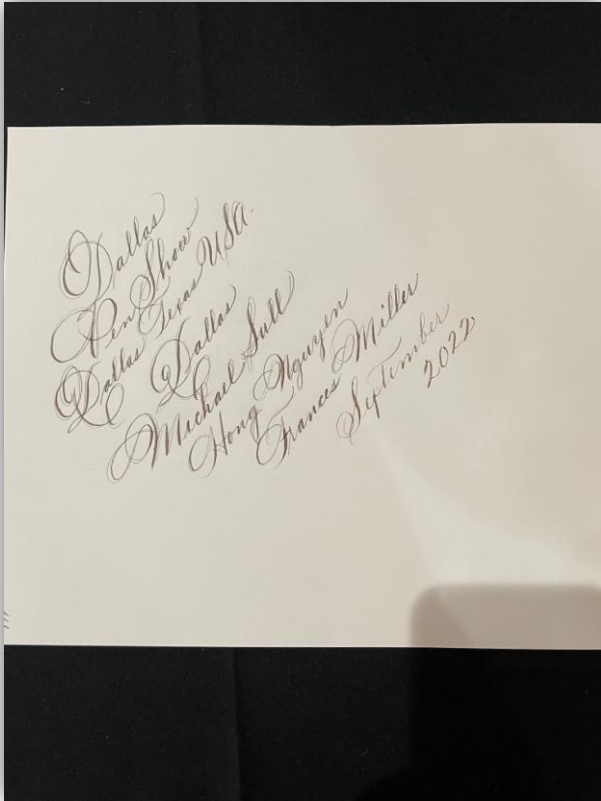 Dallas
Pen Show
Dallas Texas USA.
Dallas
Michael Sull
Hong Nguyen
Frances Miller
September
2022